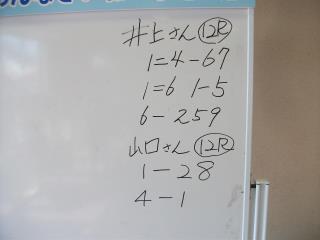 井上さん 12R
1=4-67
1=6 1-5
6-259
山口さん 12R
1-28
4-1